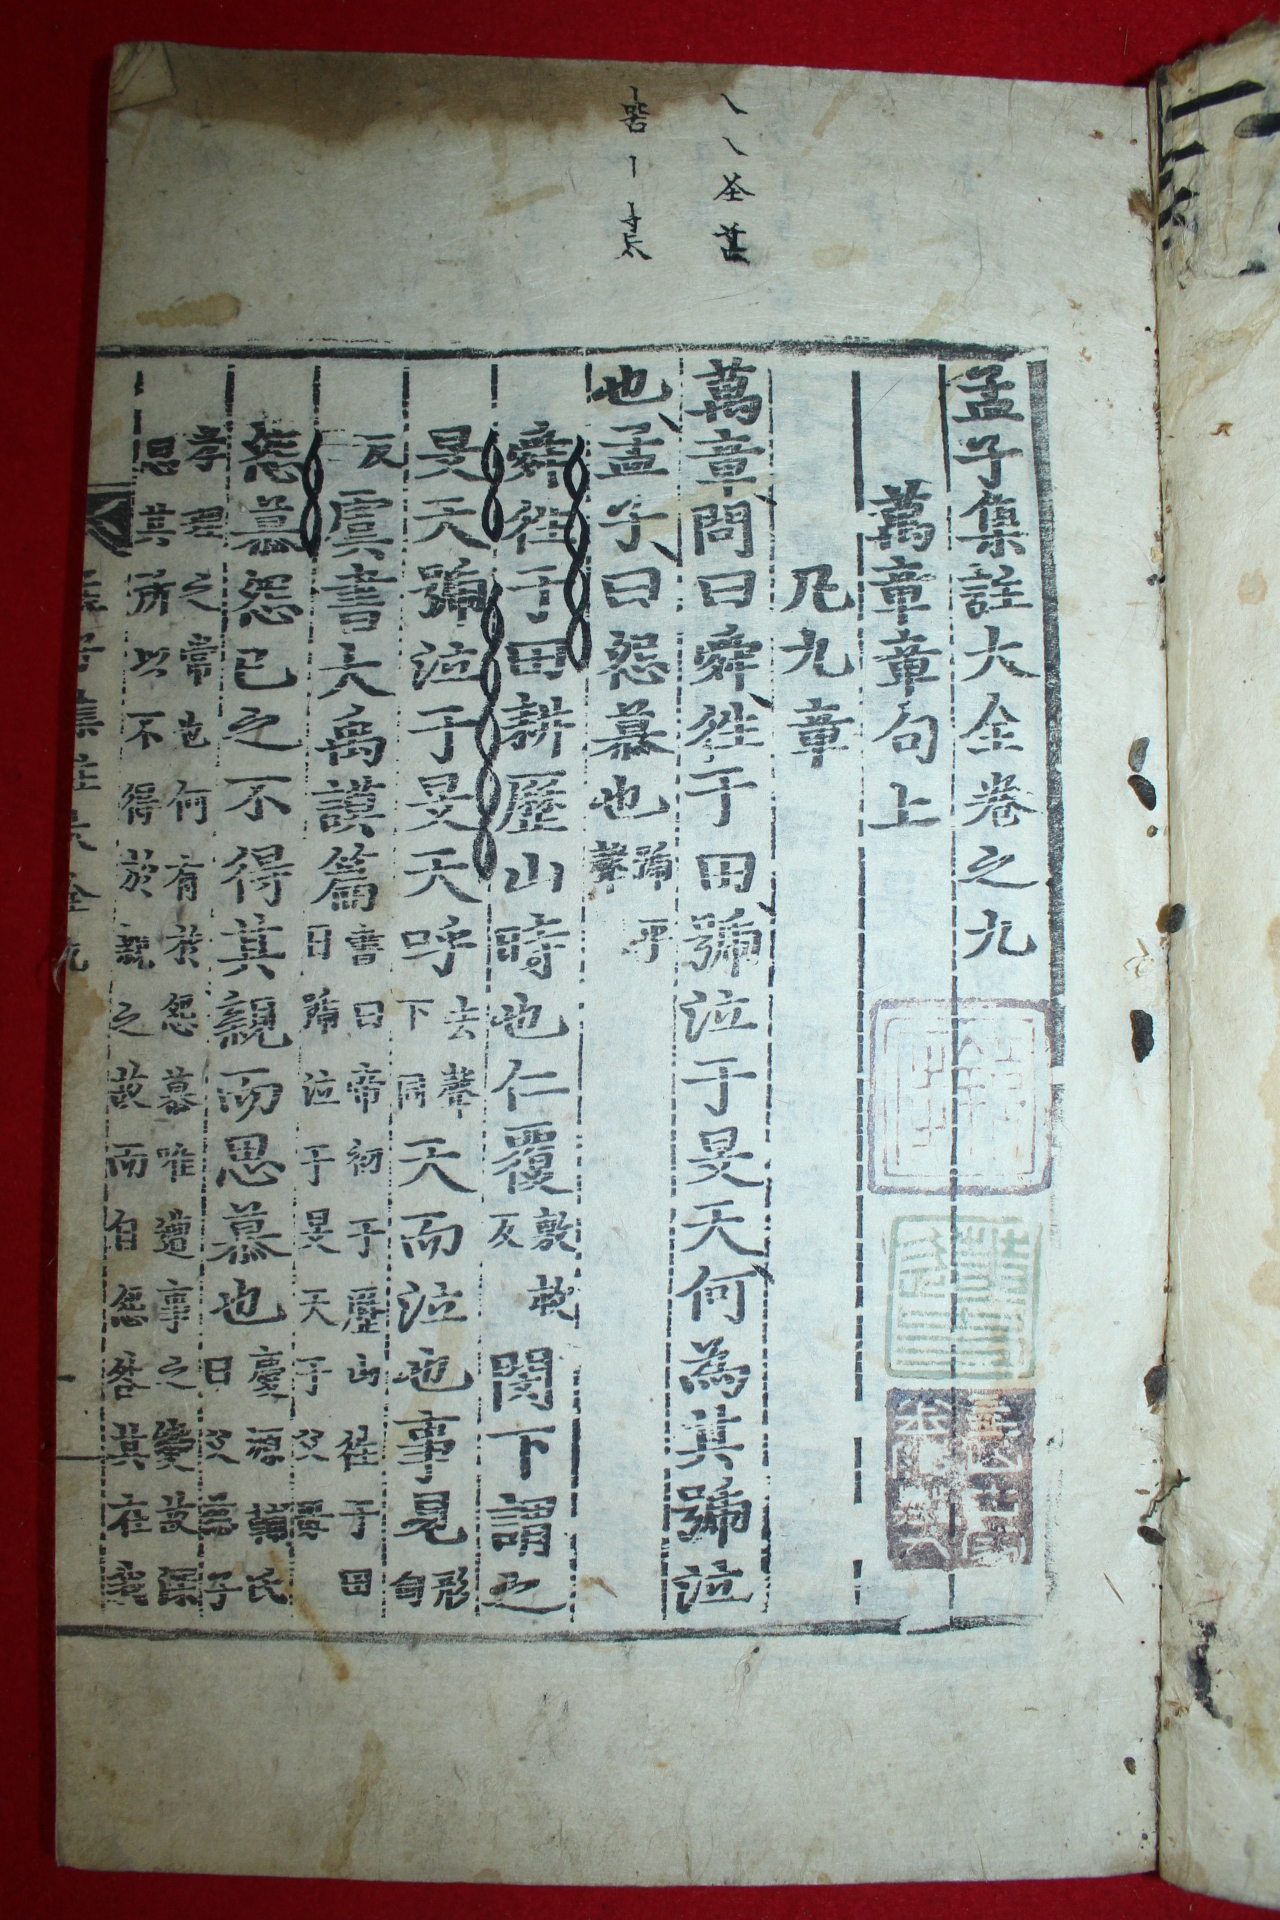 孟子集註大全卷之九
萬章章句上
凡九章
萬章問曰舜往于田號泣于旻天何為其號泣
也孟子曰怨慕也號平聲
舜往于田耕歷山時也仁覆敷救反閔下謂之
旻天號泣于旻天呼去聲下同天而泣也事見形甸
反虞書大禹謨篇書曰帝初于歷山往于田日號泣于旻天于父母
怨慕怨己之不得其親而思慕也慶源輔氏曰父慈子
孝理之常也何有於怨慕唯遭事之變故深
思其所以不得於親之故而自怨咎其在我
孟子集註大全九